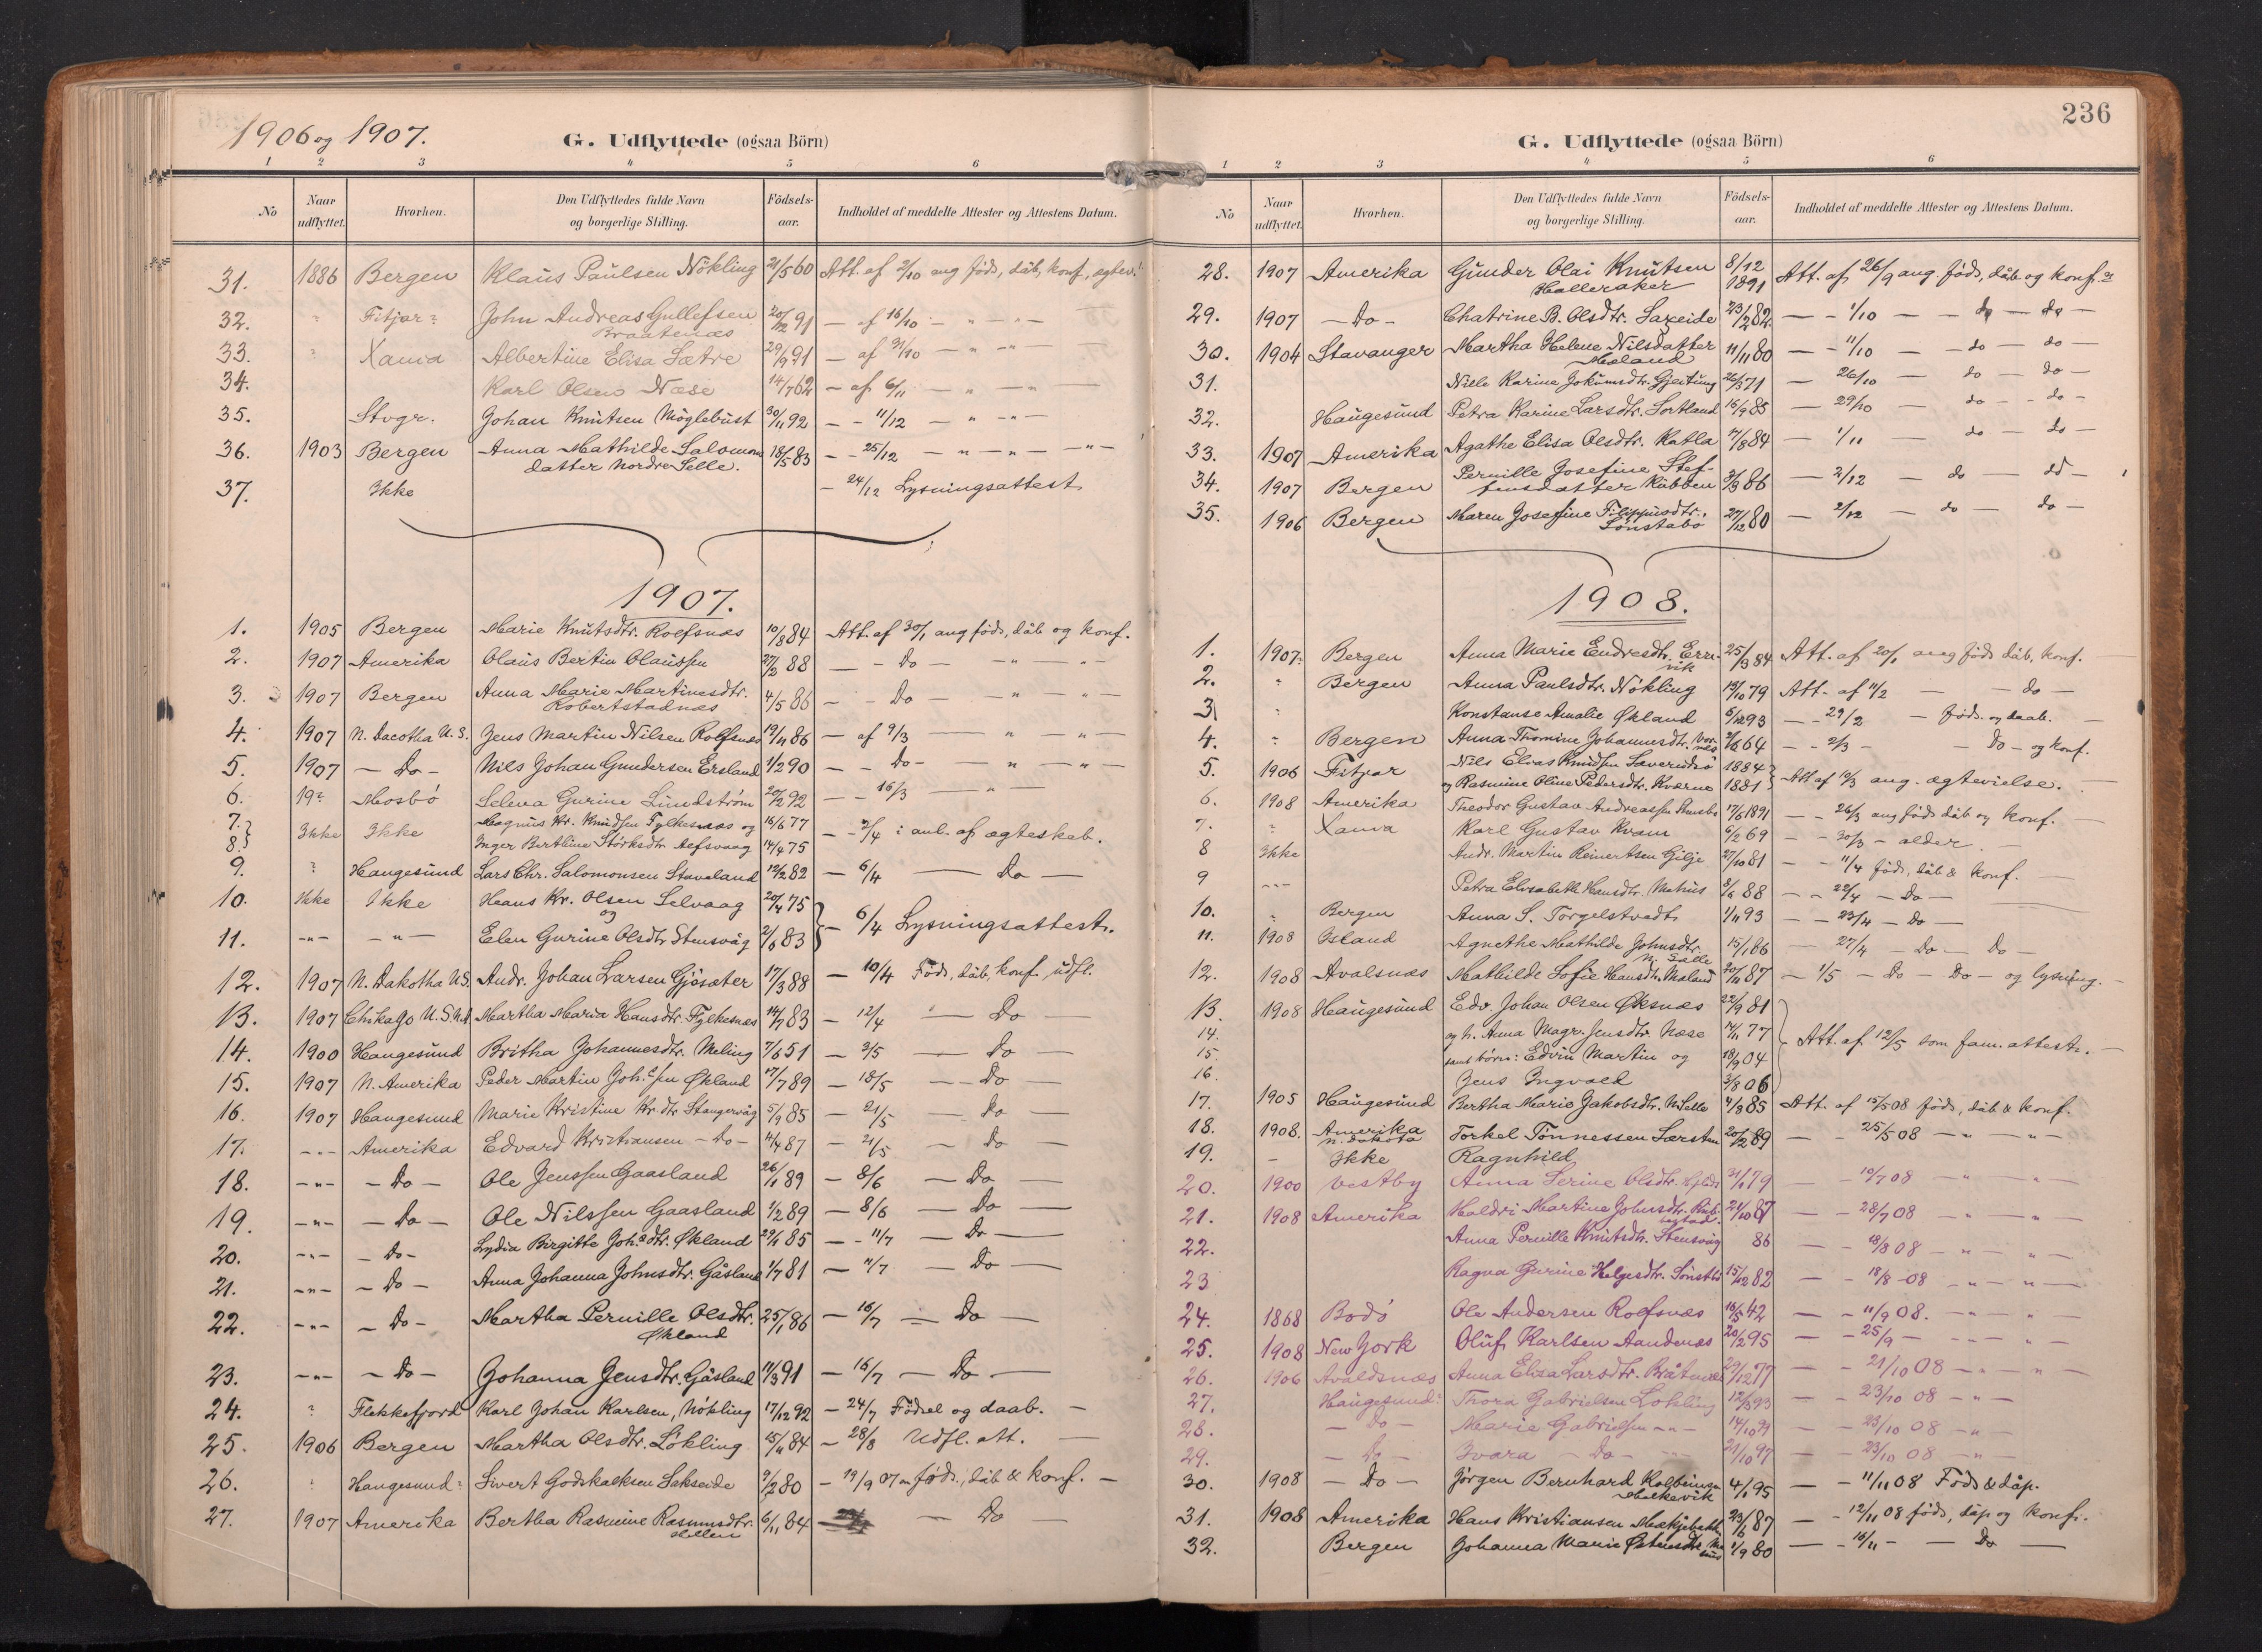 1906 og 1907.
G. Udflyttede (ogsaa Börn)
1 2 3 4 5 6
No Naar udflyttet. Hvorhen. Den Udflyttedes fulde Navn og borgerlige Stilling. Födsels-aar. Indholdet af meddelte Attester og Attestens Datum.
31. 1886 Bergen Klaus Paulsen Nökling 21/5 60 Att. af 2/10 ang föds, dåb, konf, egtev.
32. " Fitjar? John Andreas Gullefsen Braatenæs 20/12 91 — af 16/10 — " — " —
33. " Xania Albertine Elisa Sætre 29/9 91 — af 31/10 — " — " —
34. Karl Olsen Næse 14/7 62 — af 6/11 — " — " —
35. Stvgr. Johan Knutsen Möglebust 30/11 92 — - 11/12 — " — " —
36. 1903 Bergen Anna Mathilde Salomons
datter Nordre Selle. 18/5 83 — - 25/12 — " — " — " —
37. Ikke — 24/12 Lysningsattest
1907.
1. 1905 Bergen Marie Knutsdtr. Rolfsnæs 10/8 84 Att. af 30/1 ang föds, dåb og konf.
2. 1907 Amerika Olaus Bertin Olaussen 27/2 88 — - Do — " — " —
3. 1907 Bergen Anna Marie Martinesdtr.
Robertstadnæs 4/5 86 — - Do — " — " —
4. 1907 N. Dacotha U. S. Jens Martin Nilsen Rolfsnæs 19/11 86 — af 9/3 — " — " —
5. 1907 — Do — Nils Johan Gundersen Ersland 1/2 90 — - Do — " — " —
6. 19? Mosbö Selena Gurine Lindström 20/2 92 — - 16/3 — " —
7. } Ikke Ikke Magnus Kr. Knudsen Fylkesnæs og 16/6 77 — - 2/4 i anl. af ægteskab.
8. } Inger Bertline Störksdtr. Aefsvaag 14/4 75
9. ? Haugesund Lars Chr. Salomonsen Stavland 19/2 82 — 6/4 — Do —
10. Ikke Ikke Hans Kr. Olsen Selvaag 20/4 75
og } — 6/4 Lysningsattest.
11. — " — — " — Elen Gurine Olsdtr Stensvåg 2/6 83
12. 1907 N. Dakotha U.S. Andr. Johan Larsen Gjösæter 17/3 88 — 10/4 Föds, dåb, konf, udfl.
13. 1907 Chikago U.S.N.A. Martha Maria Hansdtr. Fylkesnæs 14/7 83 — 12/4 — Do —
14. 1900 Haugesund Britha Johannesdtr. Meling 7/6 51 — 3/5 — Do —
15. 1907 N. Amerika Peder Martin Joh.s/en Økland 17/7 89 — 18/5 — Do —
16. 1907 Haugesund Marie Kristine Kr.dtr Stangervåg 5/9 85 — 21/5 — Do —
17. — " — Amerika Edvard Kristiansen — Do — 4/4 87 — 21/5 — Do —
18. — " — — Do — Ole Jenssen Gaasland 26/1 89 — 8/6 — Do —
19. — " — — Do — Ole Nilssen Gaasland 1/2 89 — 8/6 — Do —
20. — " — — Do — Lydia Birgitte Joh.s dtr. Økland 29/1 85 — - 11/7 — Do —
21. — " — — Do — Anna Johanna Johnsdtr. Gåsland 1/7 81 — 11/7 — Do —
22. — " — — Do — Martha Pernille Olsdtr.
Økland 25/1 86 — 16/7 — Do —
23. — " — — Do — Johanna Jensdtr. Gåsland 11/3 91 — 16/7 — Do —
24. ? Flekkefjord Karl Johan Karlsen, Nökling 17/12 92 — 24/7 Födsel og daab. —
25. 1906 Bergen Martha Olsdtr. Lökling 15/11 84 — 28/8 Udfl. att. —
26. ? Haugesund: Sivert Godskalksen Sakseide 9/2 80 — 19/9 07 föds, dåb & konf. —
27. 1907 Amerika Bertha Rasmine Rasmusdtr.
Hellen 6/11 84 — Do —
236
G. Udflyttede (ogsaa Börn)
1 2 3 4 5 6
No Naar udflyttet. Hvorhen. Den Udflyttedes fulde Navn og borgerlige Stilling. Födsels-aar. Indholdet af meddelte Attester og Attestens Datum.
28. 1907 Amerika Gunder Olai Knutsen
Halleraker 8/12 1891 Att. af 26/9 ang. föds, dåb og konf.
29. 1907 — Do — Chatrine B. Olsdtr. Saxeide 23/2 82 — - 1/10 — - do — do —
30. 1904 Stavanger Martha Helene Nilsdatter
Meland 11/11 80 — - 11/10 — - do — do —
31. Nille Karine Jokumsdtr. Gjeitung 26/3 71 — 26/10 — do — do —
32. Haugesund Petra Karine Larsdtr. Sortland 16/9 85 — 29/10 — do — do —
33. 1907 Amerika Agathe Elisa Olsdtr. Katla 17/8 84 — 1/11 — do — do —
34. 1907 Bergen Pernille Josefine Stef-
fensdatter Kubben 3/9 86 — 2/12 — do — do —
35. 1906 Bergen Maren Josefine Filippusdtr.
Sönstabö 27/12 80 — 2/12 — do — do —
1908.
1. 1907: Bergen Anna Marie Endresdtr. Erv-
vik 25/3 84 Att. af 20/1 ang föds dåb, konf. —
2. " Bergen Anna Paulsdtr. Nökling 19/10 79 Att. af 11/2 — - do —
3. " Konstanse Amalie Økland 6/12 93 — - 29/2 — föds. og daab. —
4. " Bergen Anna Thomine Johannesdtr. Vor-
nes 2/6 64 — - 2/3 — - Do — og konf.
5. 1906 Fitjar Nils Elias Knudsen 1884 } Att af 19/3 ang. ægtevielse. —
og Rasmine Oline Pedersdtr. Kværne 1881
6. 1908 Amerika Theodor Gustav Andreassen Stensbö 17/6 1891 — - 26/3 ang föds dåb og konf. —
7. " Xania Karl Gustav Kvam 6/2 69 — - 30/3 — alder. —
8 Ikke Andr. Martin Reinertsen Gilje 27/10 81 — - 11/4 föds, dåb & konf. —
9 — " — Petra Elisabeth Hansdtr. Mehus 3/6 88 — - 22/4 — Do —
10. " Bergen Anna S. Torgelstvedt 1/11 93 — - 23/4 — Do —
11. 1908 Island Agnethe Mathilde Johnsdtr.
N. Sælle 15/1 86 — 27/4 — Do — Do —
12. 1908 Avalsnæs Mathilde Sofie Hansdtr. Maland 20/11 87 — 1/5 — Do — Do — og lysning. —
13. 1908 Haugesund Edv. Johan Olsen Øksnæs 22/9 81
14. og h. Anna Magr. Jensdtr. Næse 14/11 77 } Att. af 12/5 som fam. attest. —
15. samt börn: Edvin Martin og 18/9 04
16. Jens Ingvald 3/8 06
17. 1905 Haugesund Bertha Marie Jakobsdtr. N. Selle 4/3 85 Att. af 15/5 08 föds, dåb & konf.
18. 1908. Amerika
N. Dakota Torkel Tönnessen Særsten 20/2 89 — - 25/5 08 — " — " —
19. — Ikke Ragnhild
20. 1900 Vestby Anna Serine Olsdtr. 31/1 79 — - 10/7 08 — " — " —
21. 1908 Amerika Haldri Martine Johnsdtr. 24/10 87 — - 28/7 08 — " — " —
22. Anna Pernille Knutsdtr. Stensvåg 86 — - 18/8 08 — " — " —
23 Ragna Gurine Helgesdtr. Sönstbö 15/12 82 — - 18/8 -08 — " — " —
24. 1868 Bodö Ole Andersen Rolfsnæs 16/5 42 — - 11/9 08. — " — " —
25. 1908 New York Oluf Karlsen Aandenæs 20/12 95 — - 25/9 — " — " —
26. 1906 Avaldsnæs Anna Elisa Larsdtr. Bråtenæs 29/12 77 — - 21/10 08 — " — " —
27. Haugesund: Thora Gabrielsen Lökling 12/3 93 — - 23/10 08 — " —
28. — Do — Marie Gabrielsen — " — 14/10 94 — - 23/10 08 — " —
29. — Do — Ivara — Do — 21/10 97 — - 23/10 08 — " —
30. 1908 — Do — Jörgen Bernhard Kolbeinsen
Mælkevik 4/1 95 — - 11/11 08 Föds & dåp.
31. 1908 Amerika Hans Kristiansen 23/6 87 — - 12/11 08 föds, dåp og konf.
32. Bergen Johanna Marie 1/9 80 — - 16/11 — - Do —